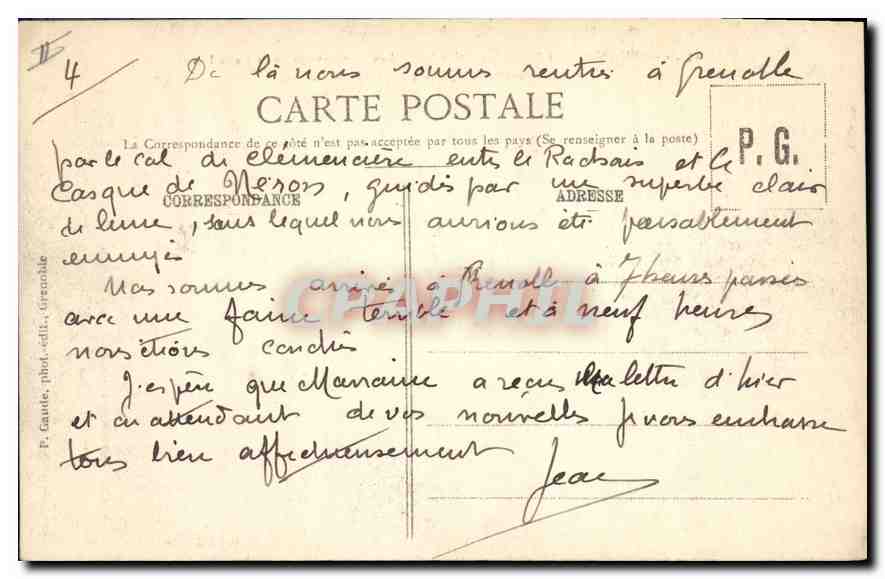 II
4
De là nous sommes rentrés à Grenoble
CARTE POSTALE
La Correspondance de ce côté n'est pas acceptée par tous les pays (Se renseigner à la poste)
P. G.
par le col de Clémencière entre le Rachais et le
Casque de Néron, guidés par une superbe clair
CORRESPONDANCE
ADRESSE
de lune, sans lequel nous aurions été passablement
ennuyés
Nous sommes arrivés à Grenoble à 7 heures passées
avec une faim terrible et à neuf heures
nous étions couchés
J'espère que Marraine a reçu ma lettre d'hier
et en attendant de vos nouvelles je vous embrasse
tous bien affectueusement
Jean
P. Gaude, phot.-édit., Grenoble
CPAPHIL